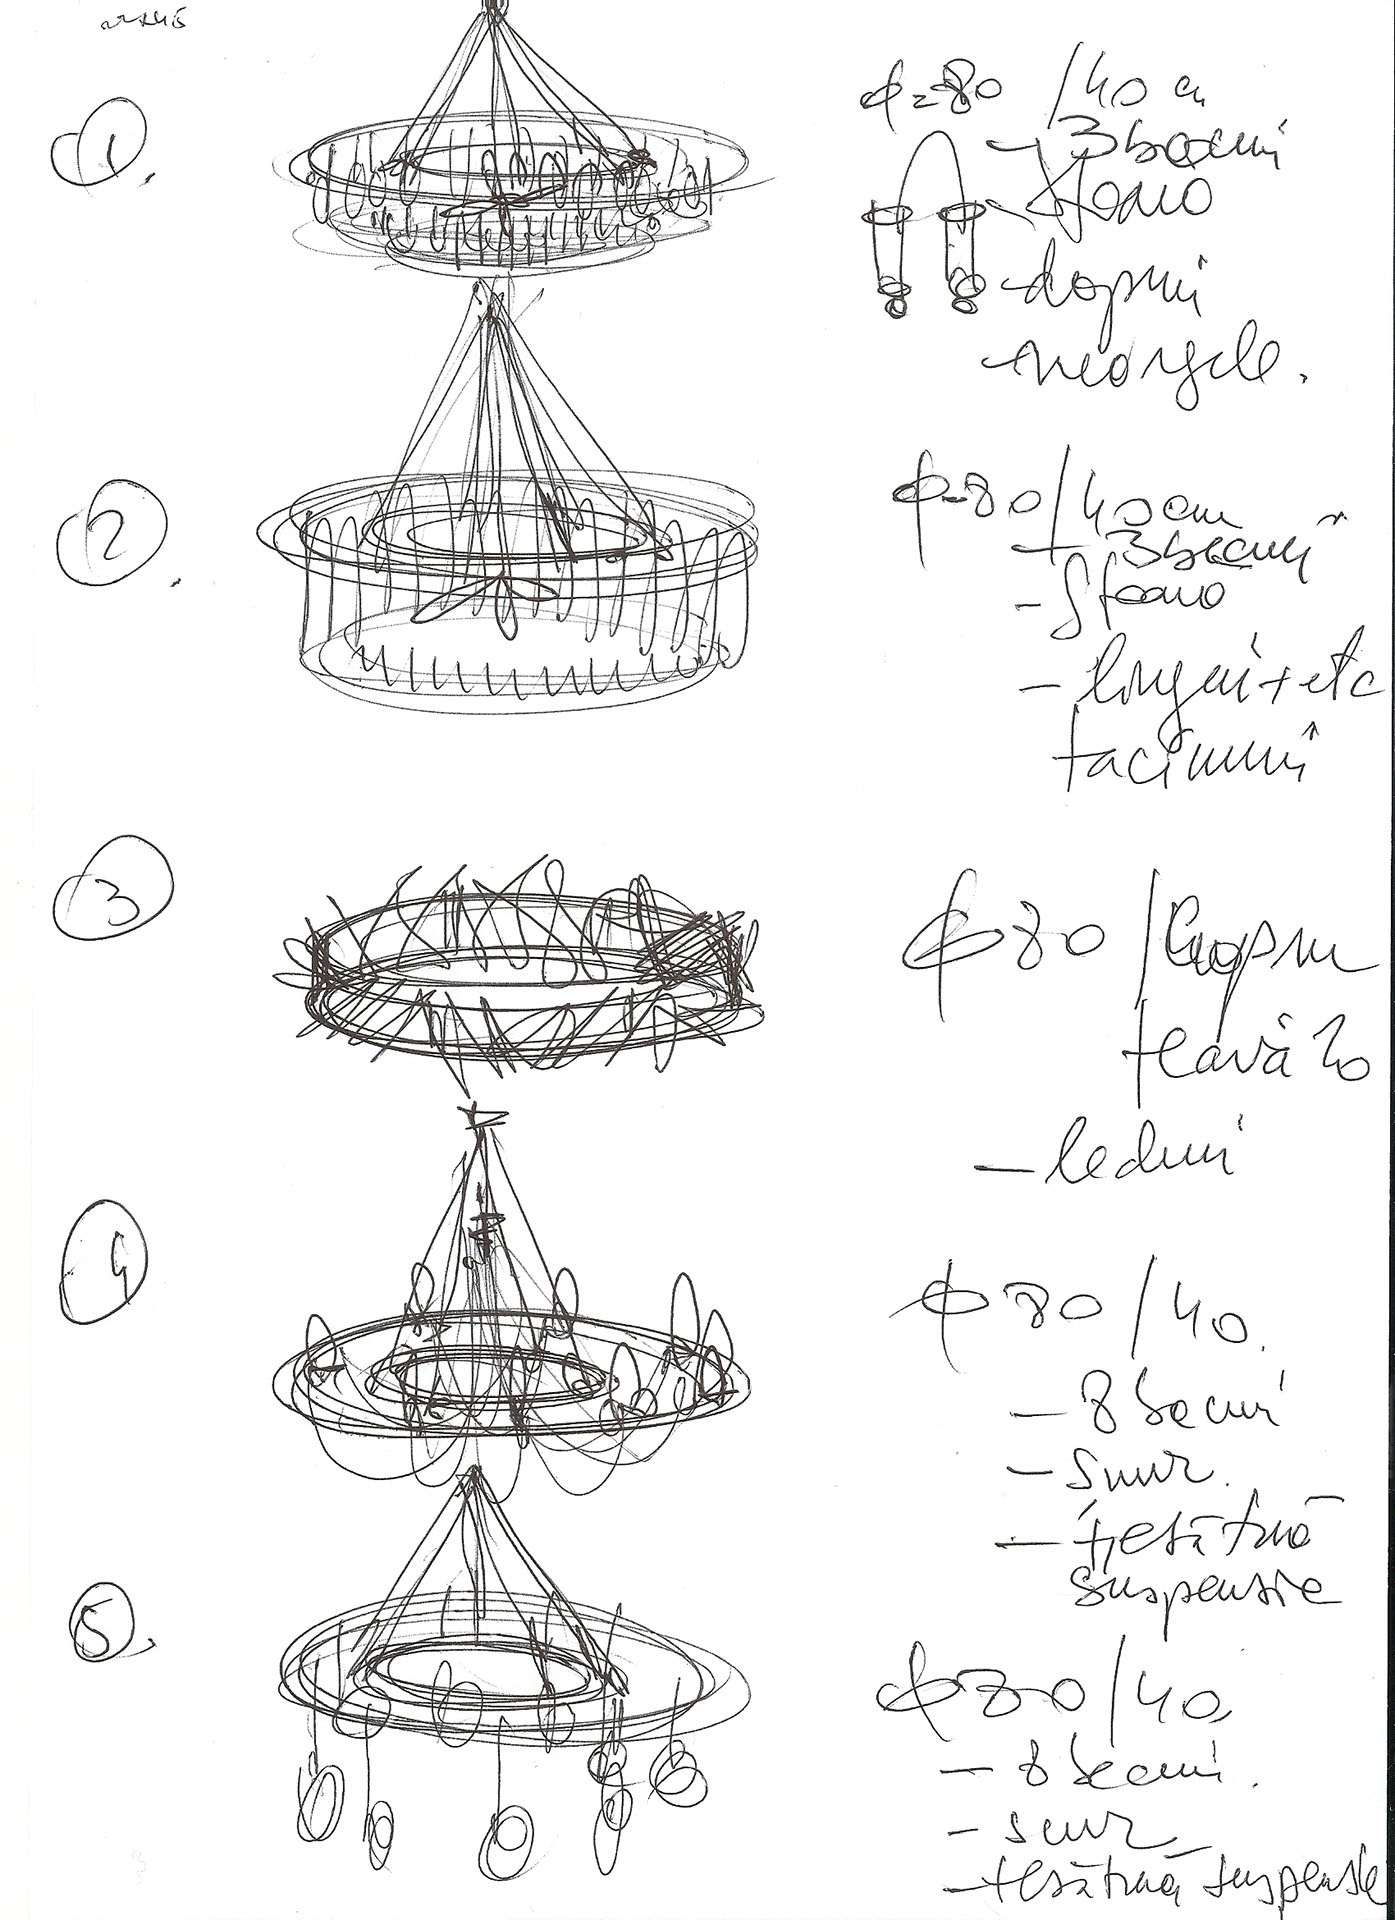 1.
φ=80 /40 cm
- 3 becuri
- sfoară
- dopuri
φ-80/40cm
- 3 becuri
- sfoară
- linguri + etc
tacâmuri
2.
3
φ 80 /
teavă 20
- leduri
4
φ 80/40
- 8 becuri
- snur.
- țesătură
suspensie
5.
φ80/40
- 8 becuri.
- snur
- tesătură suspensie